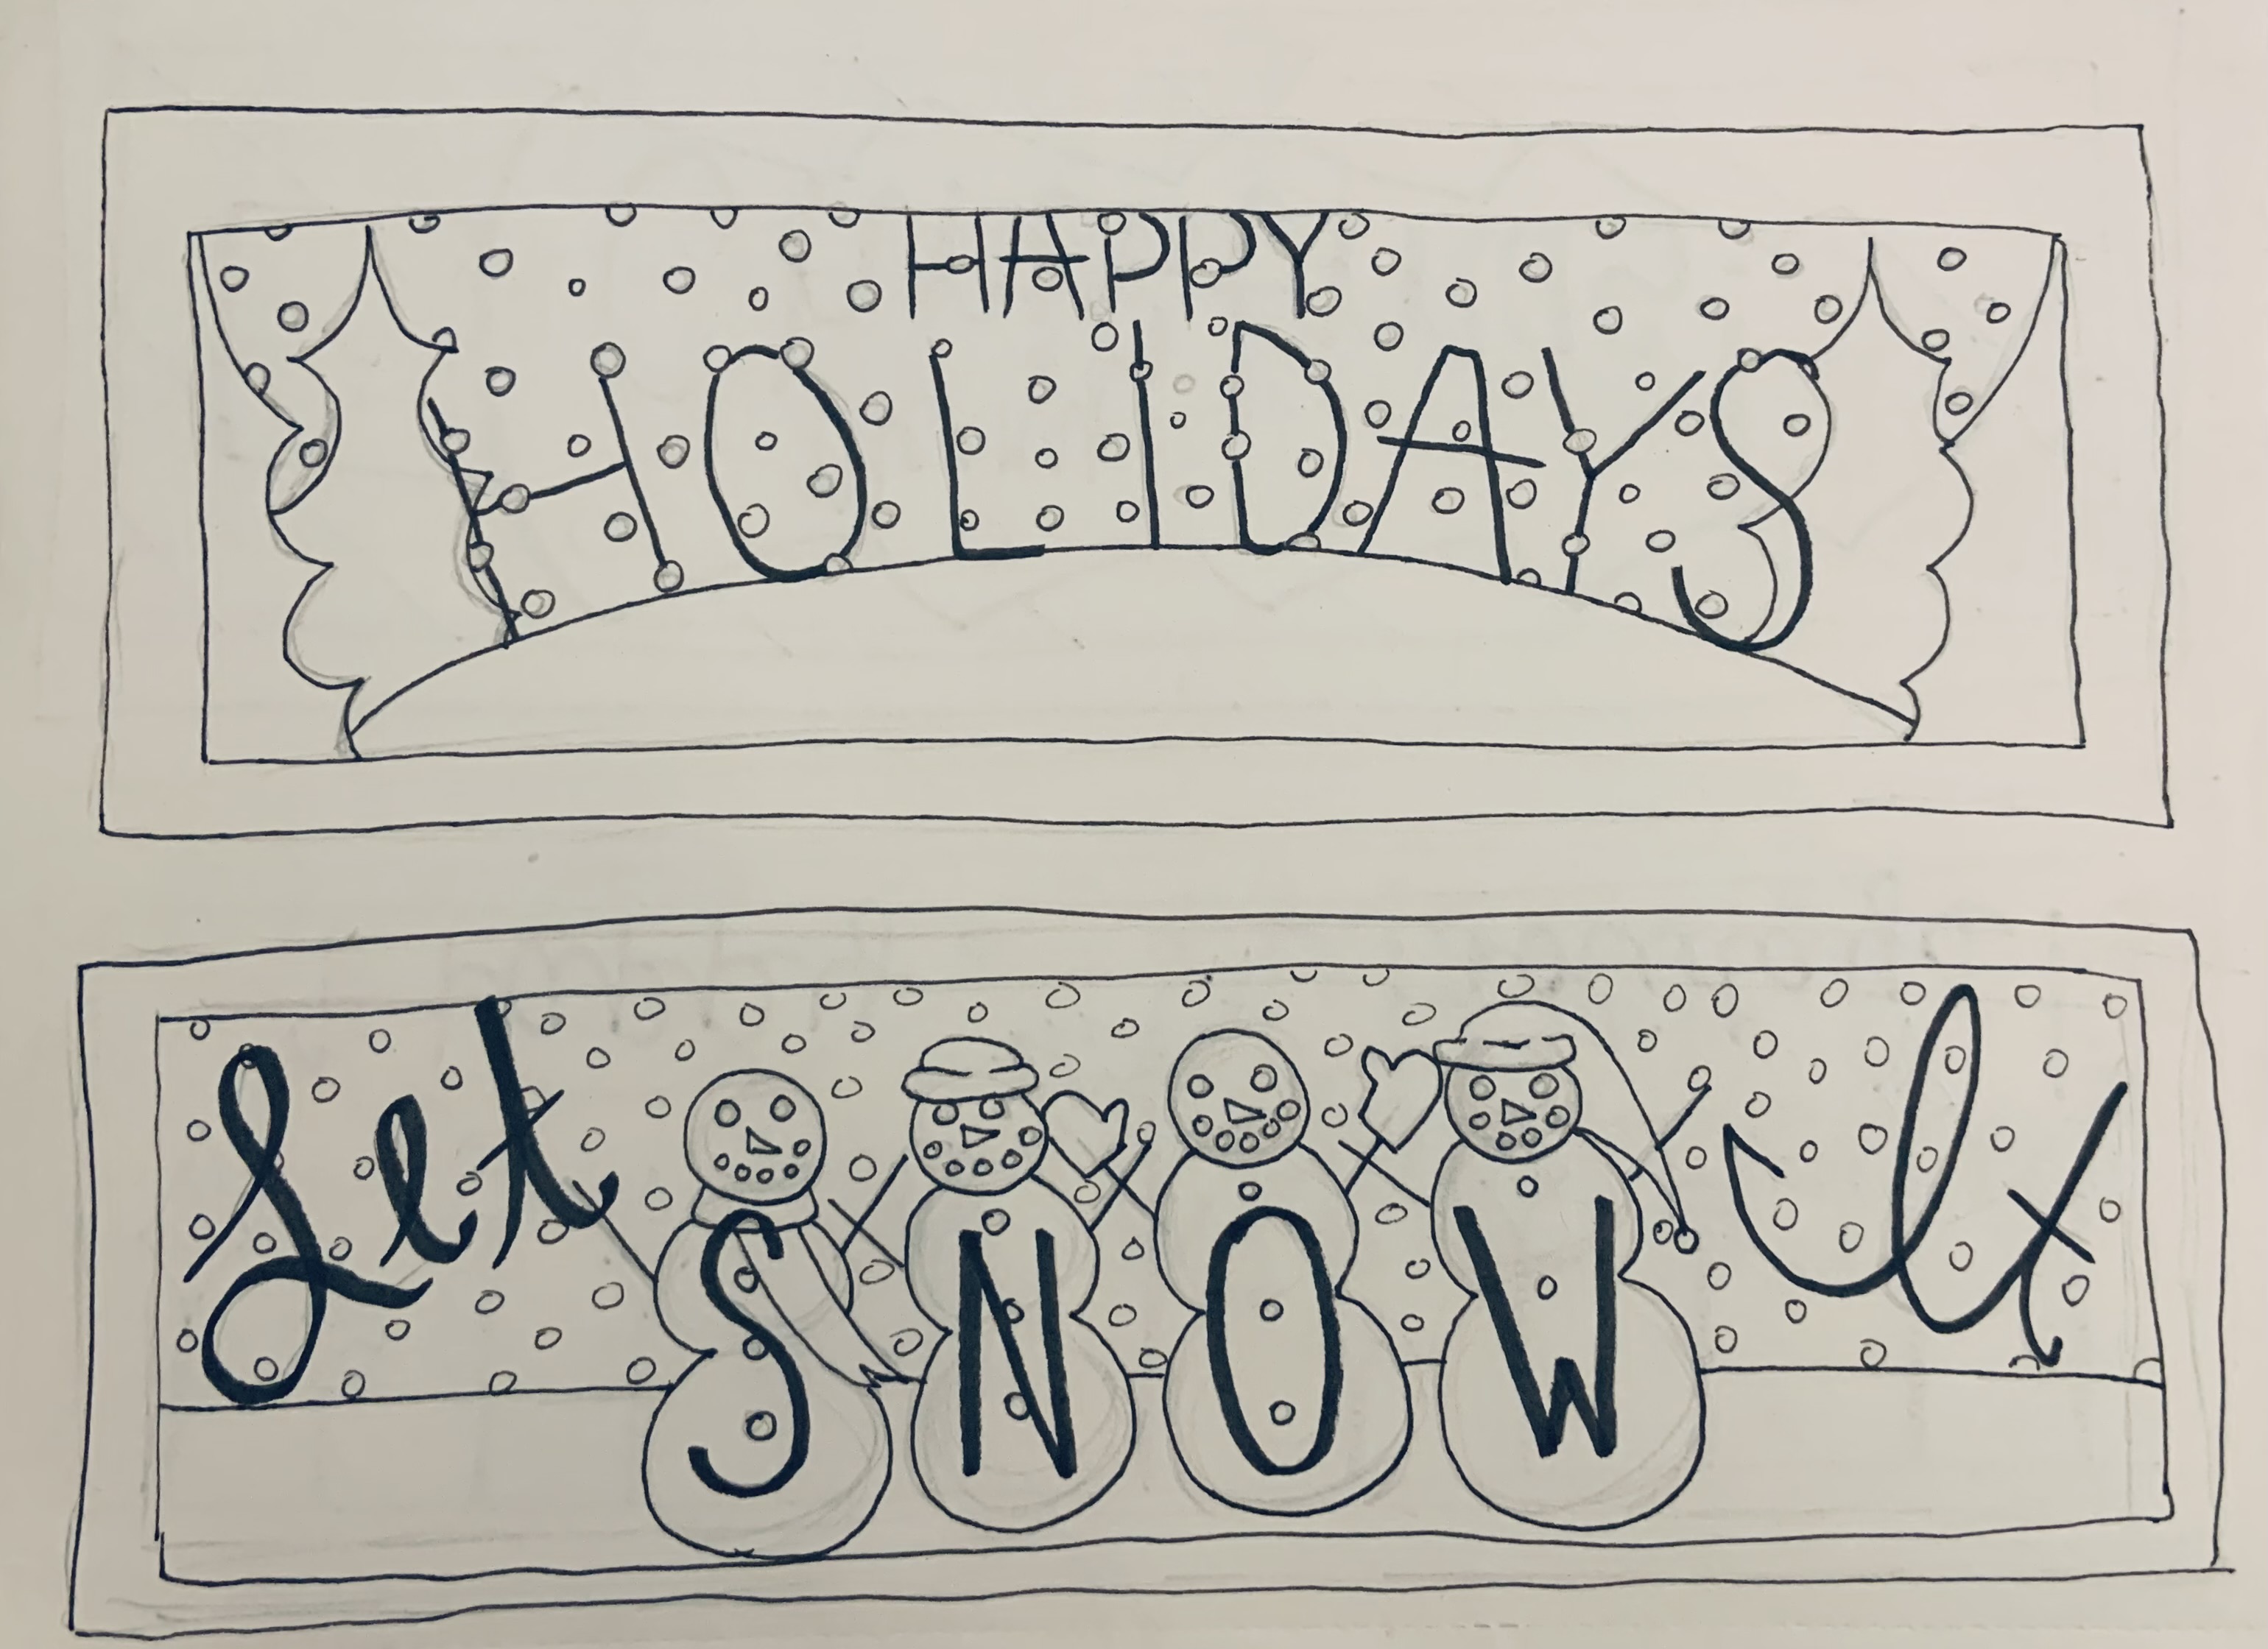 HAPPY
HOLIDAYS
Let SNOW It